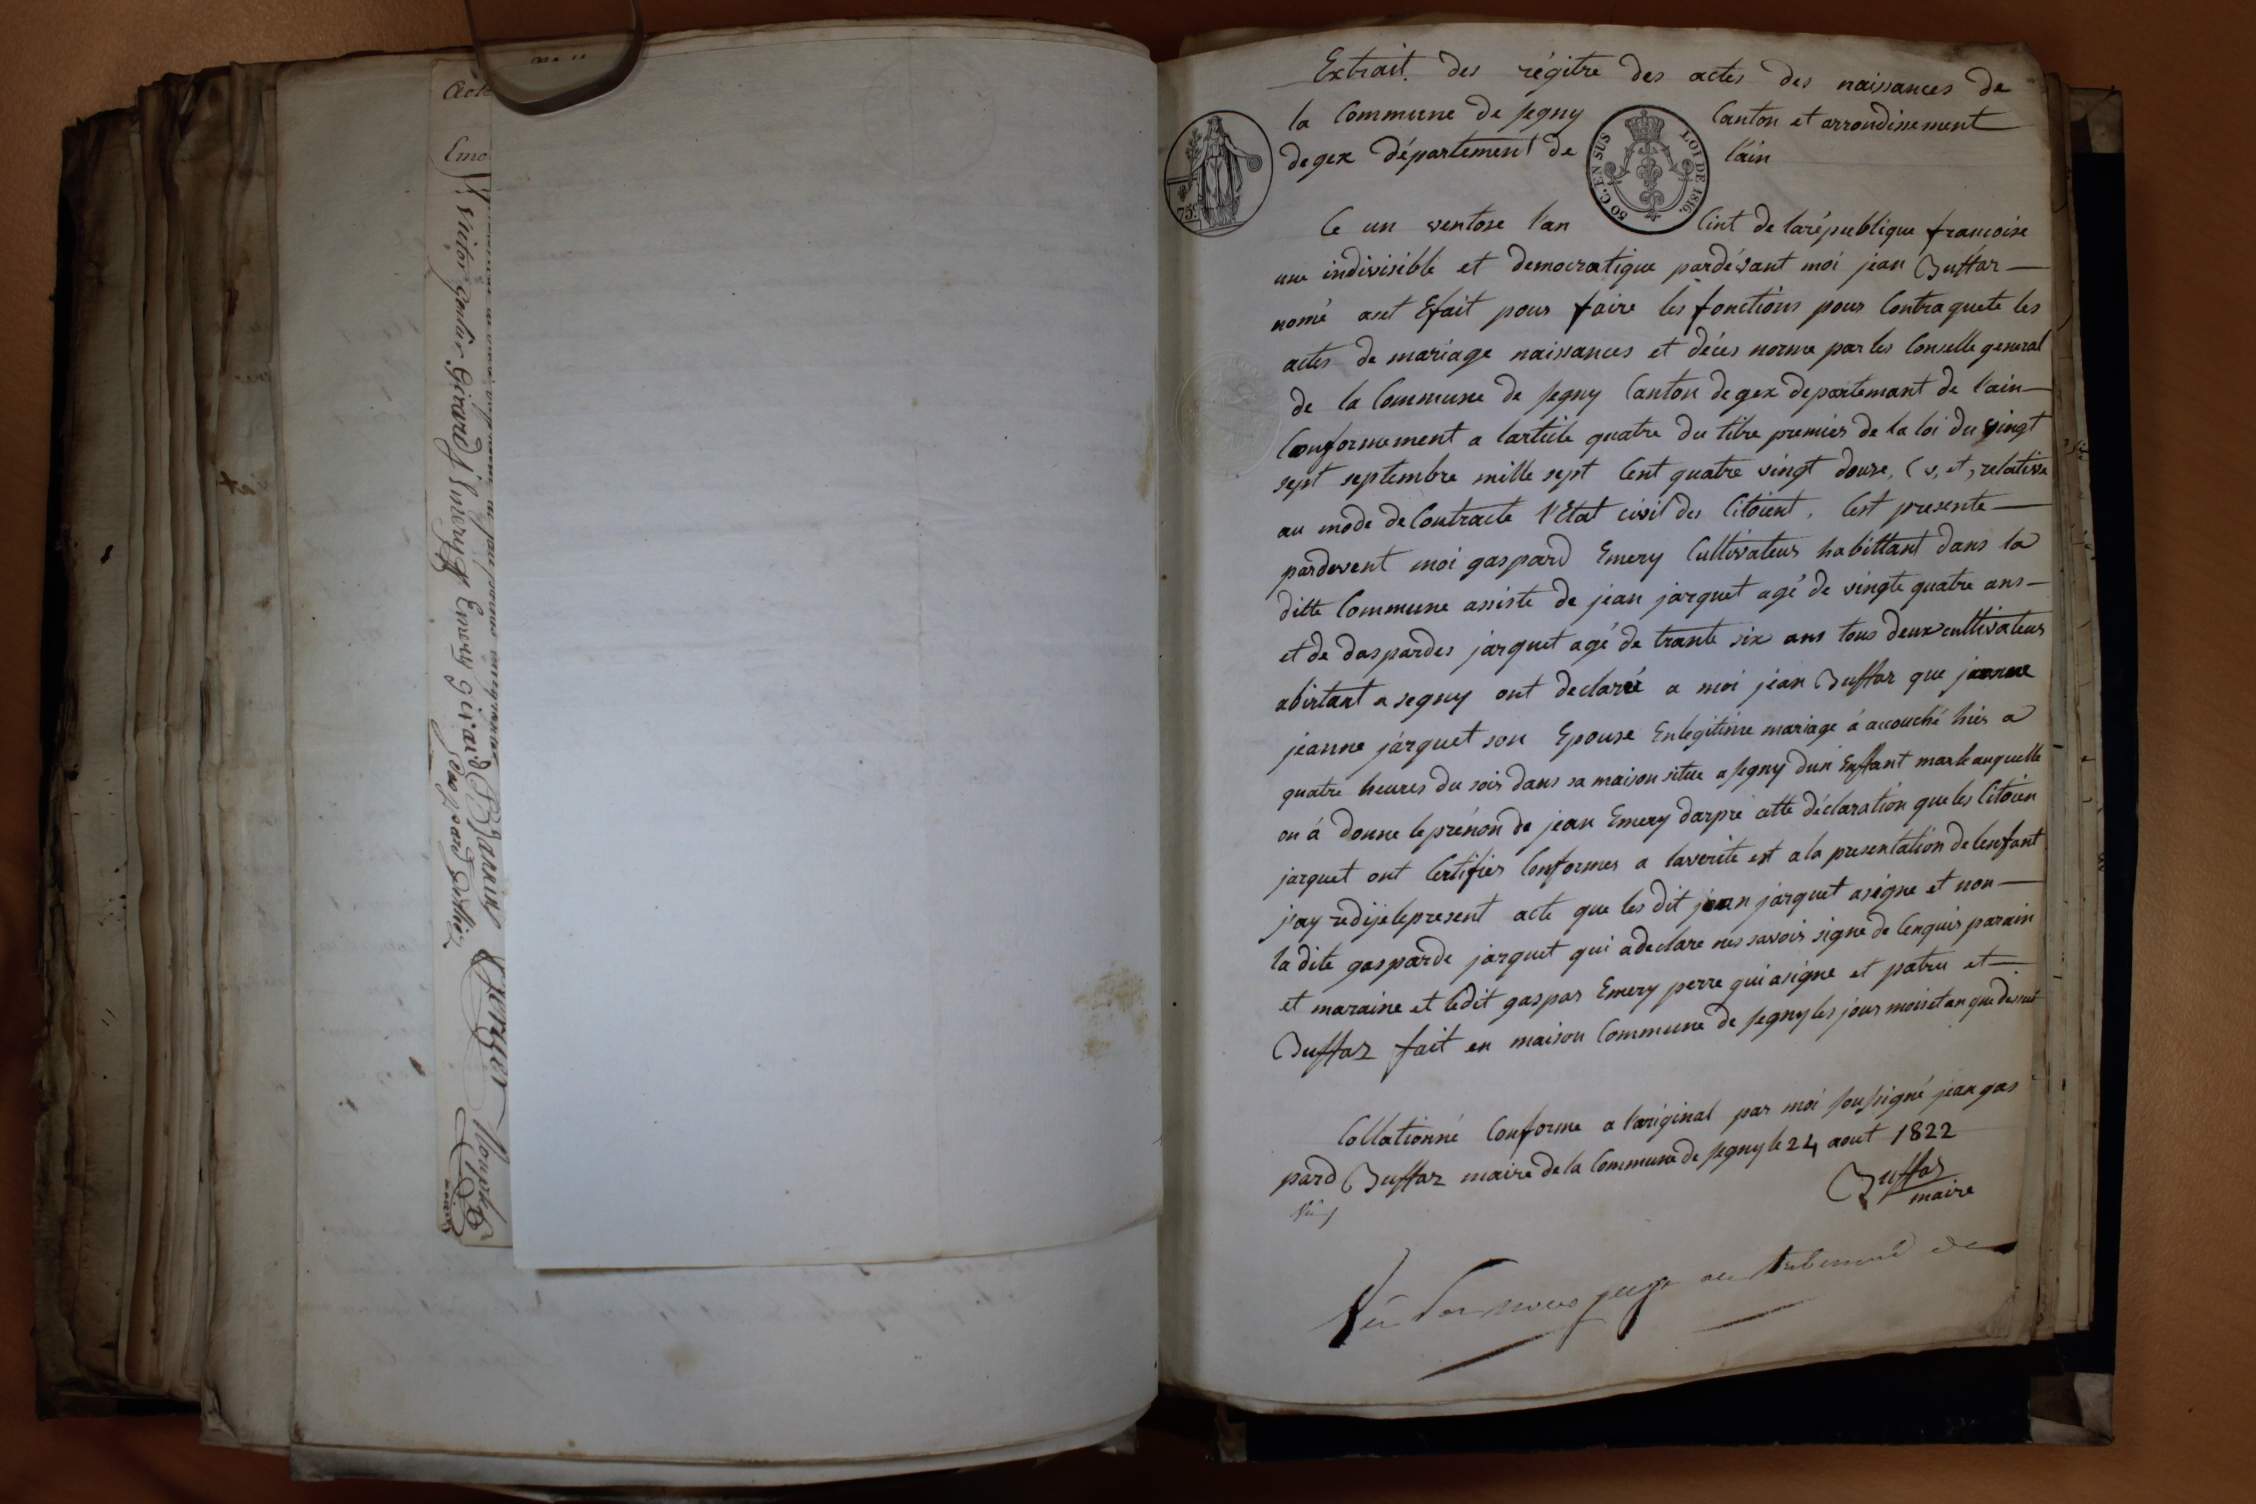 Acte
Eme
Victor Gontier, Girard J. Emery Emery girard B. Janin
Gaspard Gonthier
Extrait des régitre des actes des naissances de
la Commune de segny Canton et arrondissement
de gex département de l'ain
75c
50 C. EN SUS LOI DE 1816.
Ce un ventose l'an Cint de la république francoise
une indivisible et democratique pardévant moi jean Buffaz
nomé aset Efait pour faire les fonctions pour Contraquete les
actes de mariage naissances et déces nomme par les Conselle general
de la Commune de segny Canton de gex departemant de l'ain
Conformement a larticle quatre du titre premier de la loi du vingt
sept septembre mille sept Cent quatre vingt douze, (v, st, relative
au mode de Contracte l'Etat civil des Citoient, Cest presente
pardevent moi gaspard Emery Cultivateur habittant dans la
ditte Commune assiste de jean jarquet agé de vingte quatre ans
et de daspardes jarquet agé de trante six ans tous deux cultivateur
abirtant a segny ont declaré a moi jean Buffaz que jeanne
jeanne jarquet son Epouse En legitime mariage á accouché hier a
quatre heures du soir dans sa maison situe a segny dun Enffant marle auquelle
on á donne le prénon de jean Emery darpré atte déclaration que les Citoien
jarquet ont Certifier Conformes a laverite est a la presentation de lenfant
j'ay redije le present acte que les dit jean jarquet a segne et non
la dite gasparde jarquet qui a declare nes savoir signe de lenquis parain
et maraine et ledit gaspar Emery perre qui a signe et patru et
Buffaz fait en maison Commune de segny les jour mois et an que dessus
Collationné Conforme a l'original par moi soussigné jean gas
pard Buffaz maire de la Commune de segny le 24 aout 1822
Buffaz
maire
Vu par nous juge au tribunal de